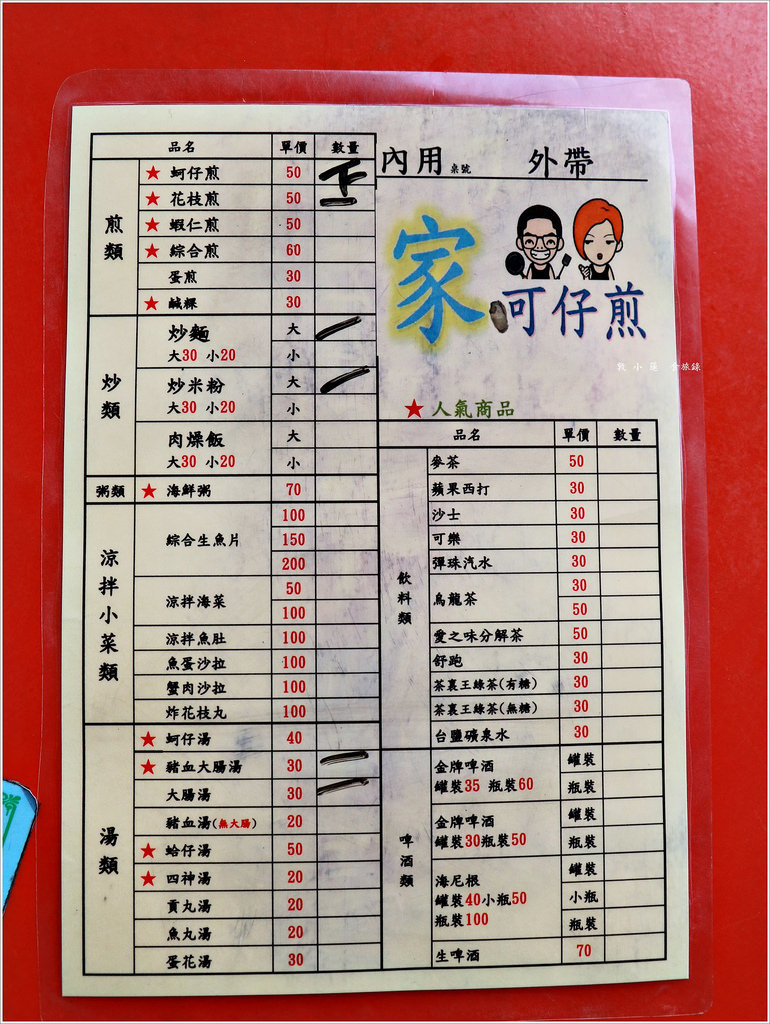 品名 單價 數量
煎類
★ 蚵仔煎 50 下
★ 花枝煎 50
★ 蝦仁煎 50
★ 綜合煎 60
蛋煎 30
★ 鹹粿 30
炒類
炒麵 大
大30 小20 小
炒米粉 大
大30 小20 小
肉燥飯 大
大30 小20 小
粥類 ★ 海鮮粥 70
涼拌小菜類
綜合生魚片 100
150
200
涼拌海菜 50
100
涼拌魚肚 100
魚蛋沙拉 100
蟹肉沙拉 100
炸花枝丸 100
湯類
★ 蚵仔湯 40
★ 豬血大腸湯 30
大腸湯 30
豬血湯(無大腸) 20
★ 蛤仔湯 50
★ 四神湯 20
貢丸湯 20
魚丸湯 20
蛋花湯 30
內用 桌號 外帶
家 可仔煎
食旅錄
★ 人氣商品
品名 單價 數量
飲料類
麥茶 50
蘋果西打 30
沙士 30
可樂 30
彈珠汽水 30
烏龍茶 30
50
愛之味分解茶 50
舒跑 30
茶裏王綠茶(有糖) 30
茶裏王綠茶(無糖) 30
台鹽礦泉水 30
啤酒類
金牌啤酒 罐裝
罐裝35 瓶裝60 瓶裝
金牌啤酒 罐裝
罐裝30瓶裝50 瓶裝
海尼根 罐裝
罐裝40小瓶50 小瓶
瓶裝100 瓶裝
生啤酒 70